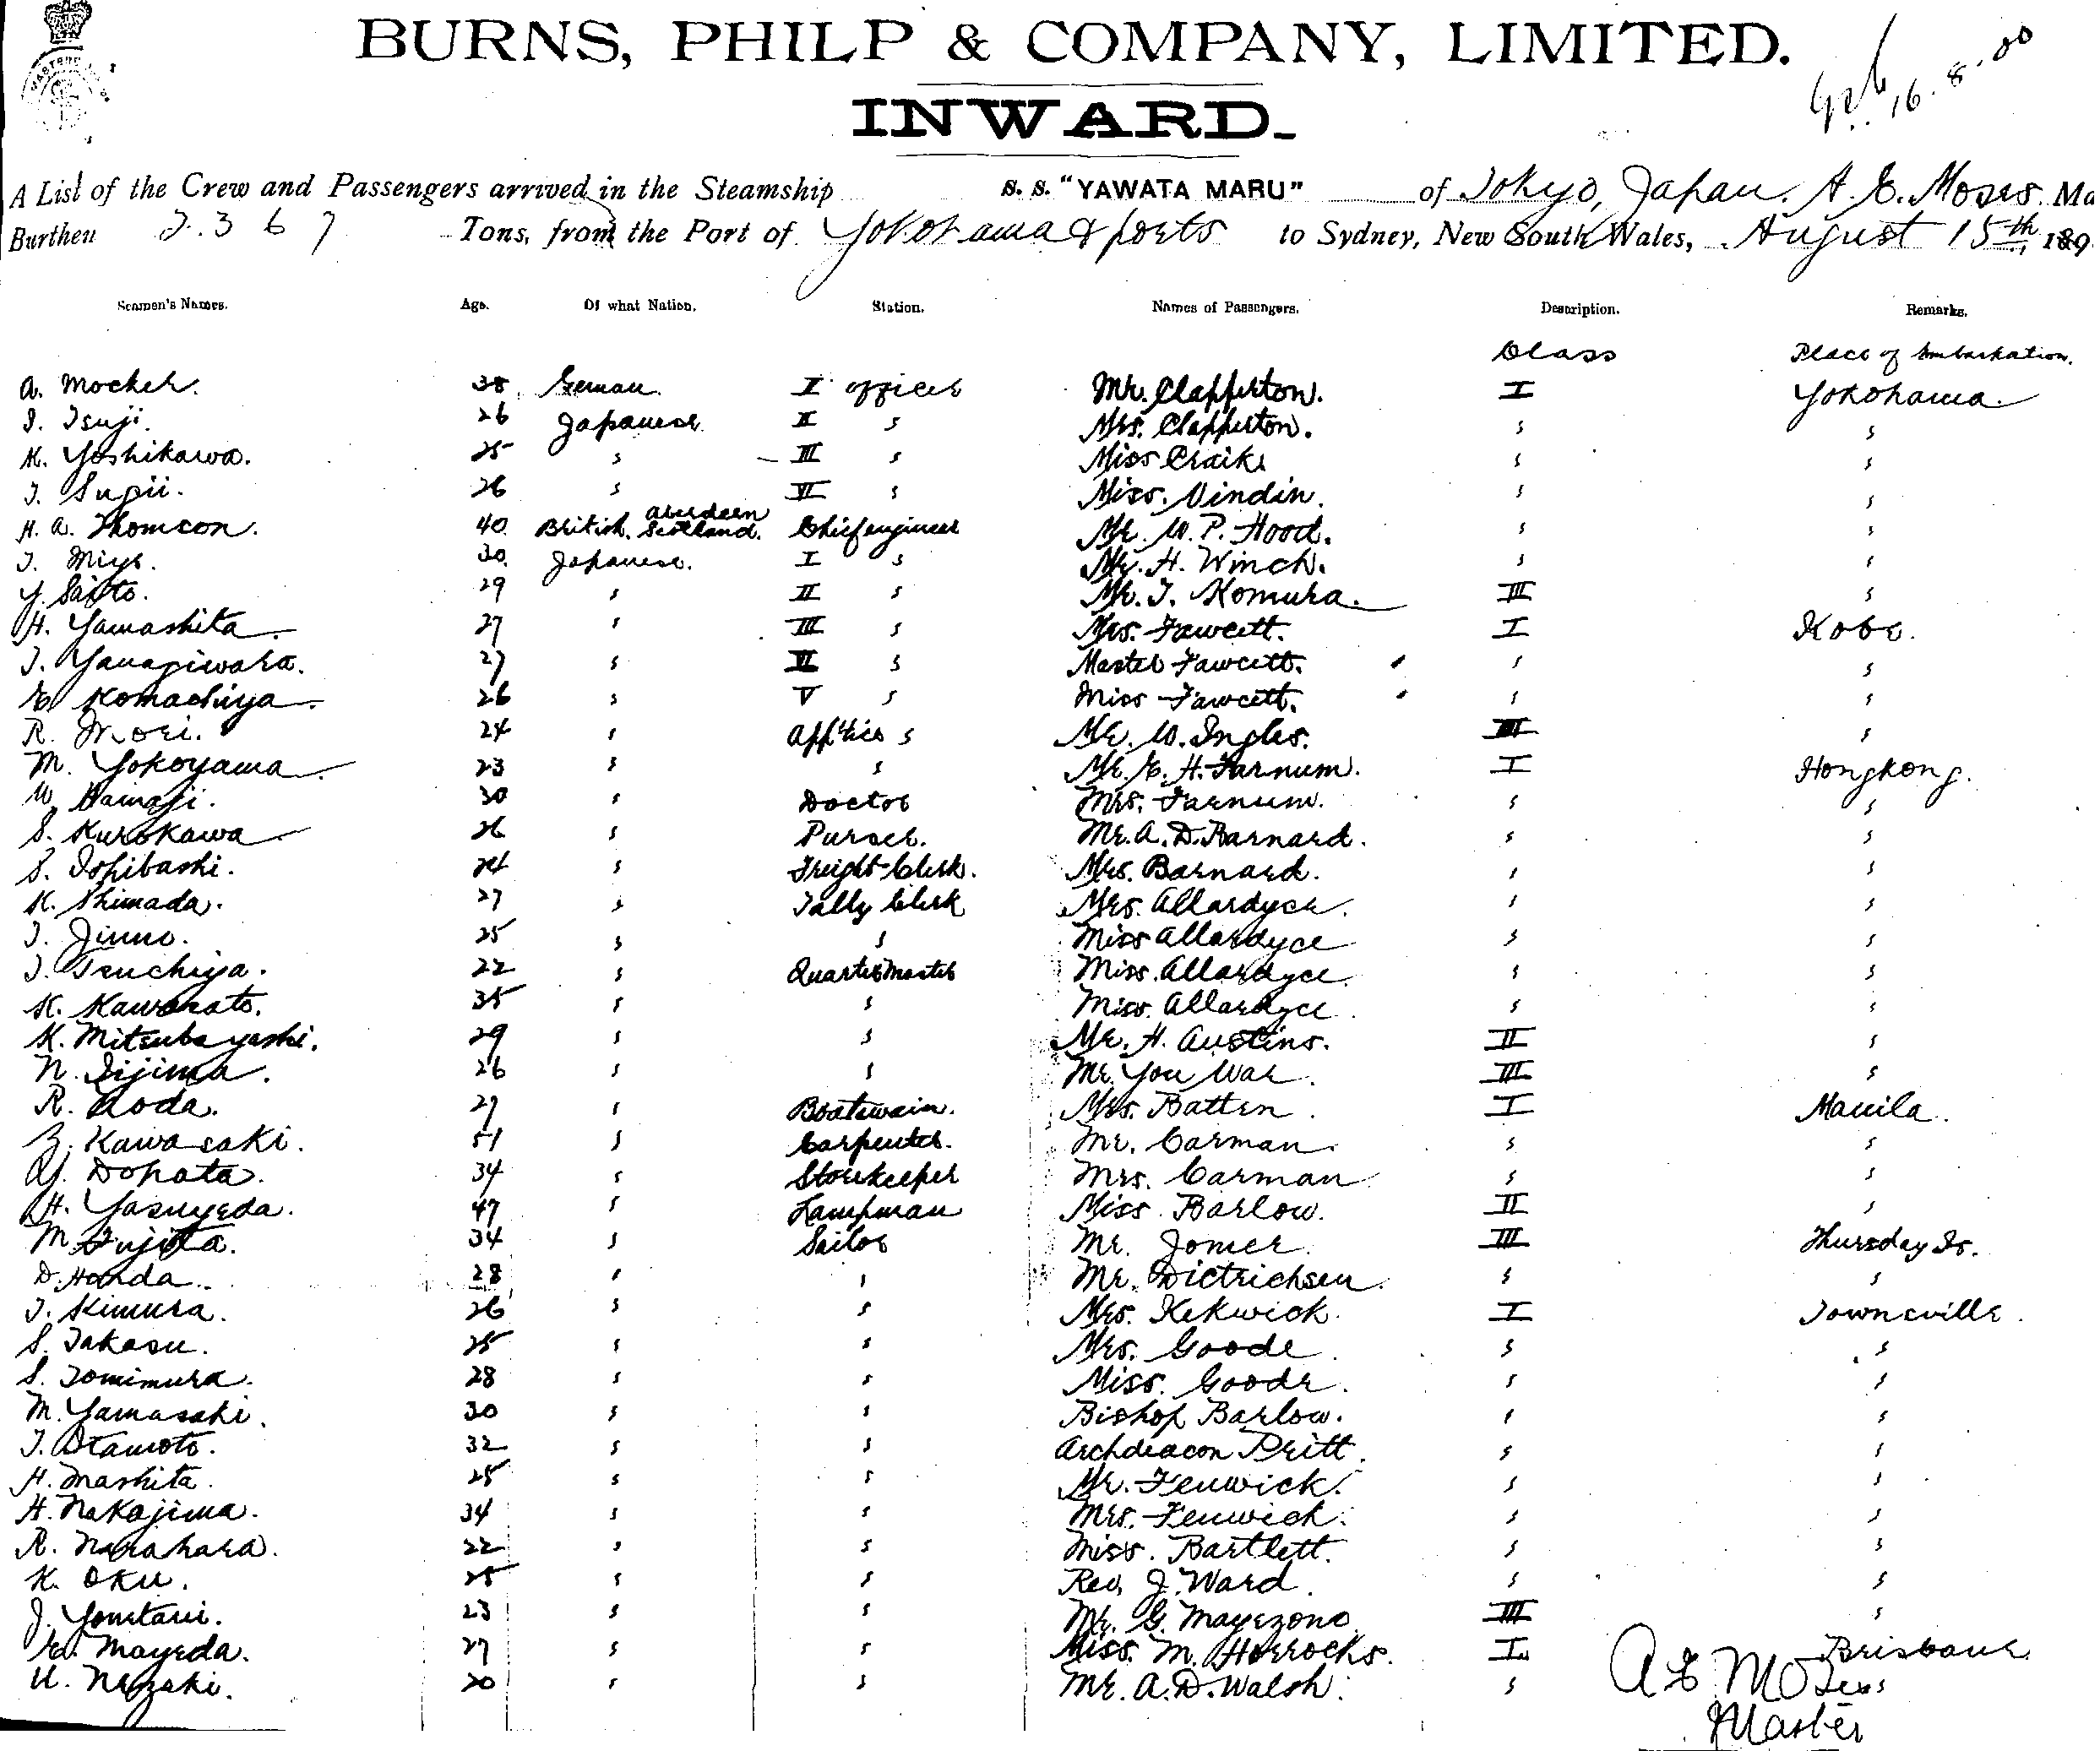 BURNS, PHILP & COMPANY, LIMITED.
16.8.00
INWARD.
A List of the Crew and Passengers arrived in the Steamship S. S. "YAWATA MARU" of Tokyo, Japan. A. E. Moses. Ma
Burthen 2.367 Tons, from the Port of Yokohama & ports to Sydney, New South Wales, August 15th, 189
Seamen's Names. Age. Of what Nation. Station. Names of Passengers. Description. Remarks.
Class Place of Embarkation.
A. Mocker. 38 German. I officer Mr. Clapperton. I Yokohama.
S. Tsuji. 26 Japanese. II " Mrs. Clapperton. " "
K. Yoshikawa. 25 " III " Miss Craik. " "
T. Sugii. 26 " VI " Miss. Vindin. " "
H. A. Thomson. 40. British. Aberdeen Scotland. Chief engineer Mr. W. P. Hood. " "
T. Miya. 30. Japanese. I " Mr. H. Winch. " "
Y. Saito. 29 " II " Mr. T. Komura. III "
H. Yamashita. 27 " III " Mrs. Fawcett. I Kobe.
T. Yanagiwara. 27 " VI " Master Fawcett. " "
E. Komachiya. 26 " V " Miss Fawcett. " "
R. Mori. 24 " App'tice " Mr. W. Ingles. III "
M. Yokoyama. 23 " " Mr. E. H. Farnum. I Hongkong.
W. Hamaji. 30 " Doctor Mrs. Farnum. " "
S. Kurokawa 26 " Purser. Mr. A. D. Barnard. " "
S. Ishibashi. 24 " Freight-Clerk. Mrs. Barnard. " "
K. Shimada. 27 " Tally Clerk Mrs. Allardyce. " "
T. Jinno. 25 " " Miss Allardyce " "
T. Tsuchiya. 22 " Quartermaster Miss. Allardyce. " "
K. Kawakato. 35 " " Miss. Allardyce. " "
K. Mitsubayashi. 29 " " Mr. H. Austins. II "
N. Iijima. 26 " " Mr. You Wah. III "
R. Koda. 27 " Boatswain. Mrs. Batten. I Manila.
Z. Kawasaki. 51 " Carpenter. Mr. Carman. " "
Y. Dohata. 34 " Storekeeper Mrs. Carman " "
H. Yasuyeda. 47 " Lampman Miss Barlow. II "
M. Fujita. 34 " Sailor Mr. Jomer. III Thursday Is.
D. Honda. 28 " " Mr. Dietrichsen. " "
T. Kimura. 26 " " Mrs. Kekwick. I Townsville.
S. Takasu. 25 " " Mrs. Goode. " "
S. Tomimura. 28 " " Miss. Goode. " "
M. Yamasaki. 30 " " Bishop Barlow. " "
T. Otamoto. 32 " " Archdeacon Pritt. " "
H. Mashita. 25 " " Mr. Fenwick. " "
H. Nakajima. 34 " " Mrs. Fenwick. " "
R. Narahara. 22 " " Miss. Bartlett. " "
K. Oku. 25 " " Rev. J. Ward. " "
J. Yonetani. 23 " " Mr. G. Mayezono III "
E. Mayeda. 27 " " Miss. M. Horrocks. I Brisbane
U. Nezaki. 20 " " Mr. A. D. Walsh. "
A E Moses
Master